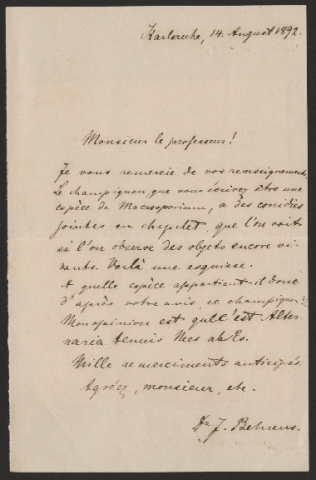 Karlsruhe, 14. August 1892.
Monsieur le professeur!
Je vous remercie de vos renseignements.
Le champignon, que vous écrivez être une
espèce de Macrosporium, a des conidies
jointes en chapelet, que l'on voit
si l'on observe des objets encore vi-
vants. Voilà une esquisse.
A quelle espèce appartient-il donc
d'après votre avis, ce champignon?
Mon opinion est qu'il c'est Alter-
naria tenuis Nees ab Es.
Mille remerciments anticipés.
Agréez, monsieur, etc.
Dr J. Behrens.